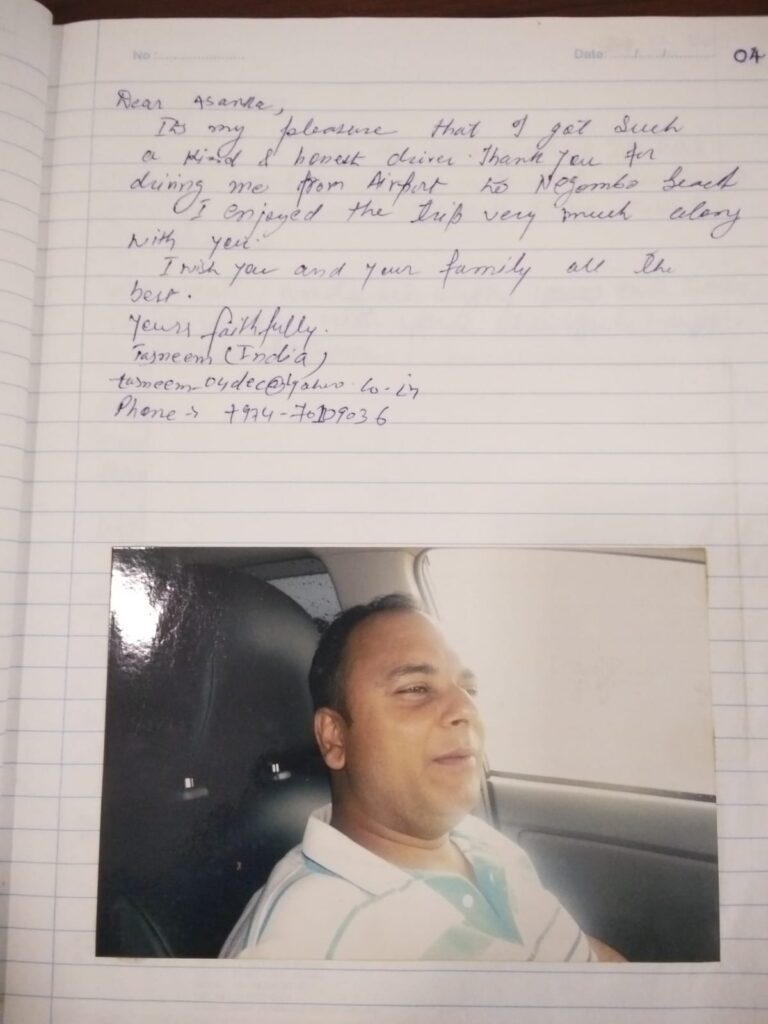 No :........................
Date: ....../....../............
04
Dear Asanka,
Its my pleasure that I got such
a kind & honest driver. Thank you for
driving me from Airport to Negombo beach
I enjoyed the trip very much along
with you.
I wish you and your family all the
best.
Yours faithfully.
Tasneem (India)
tasneem_04dec@yahoo.co.in
Phone :- +974-70109036